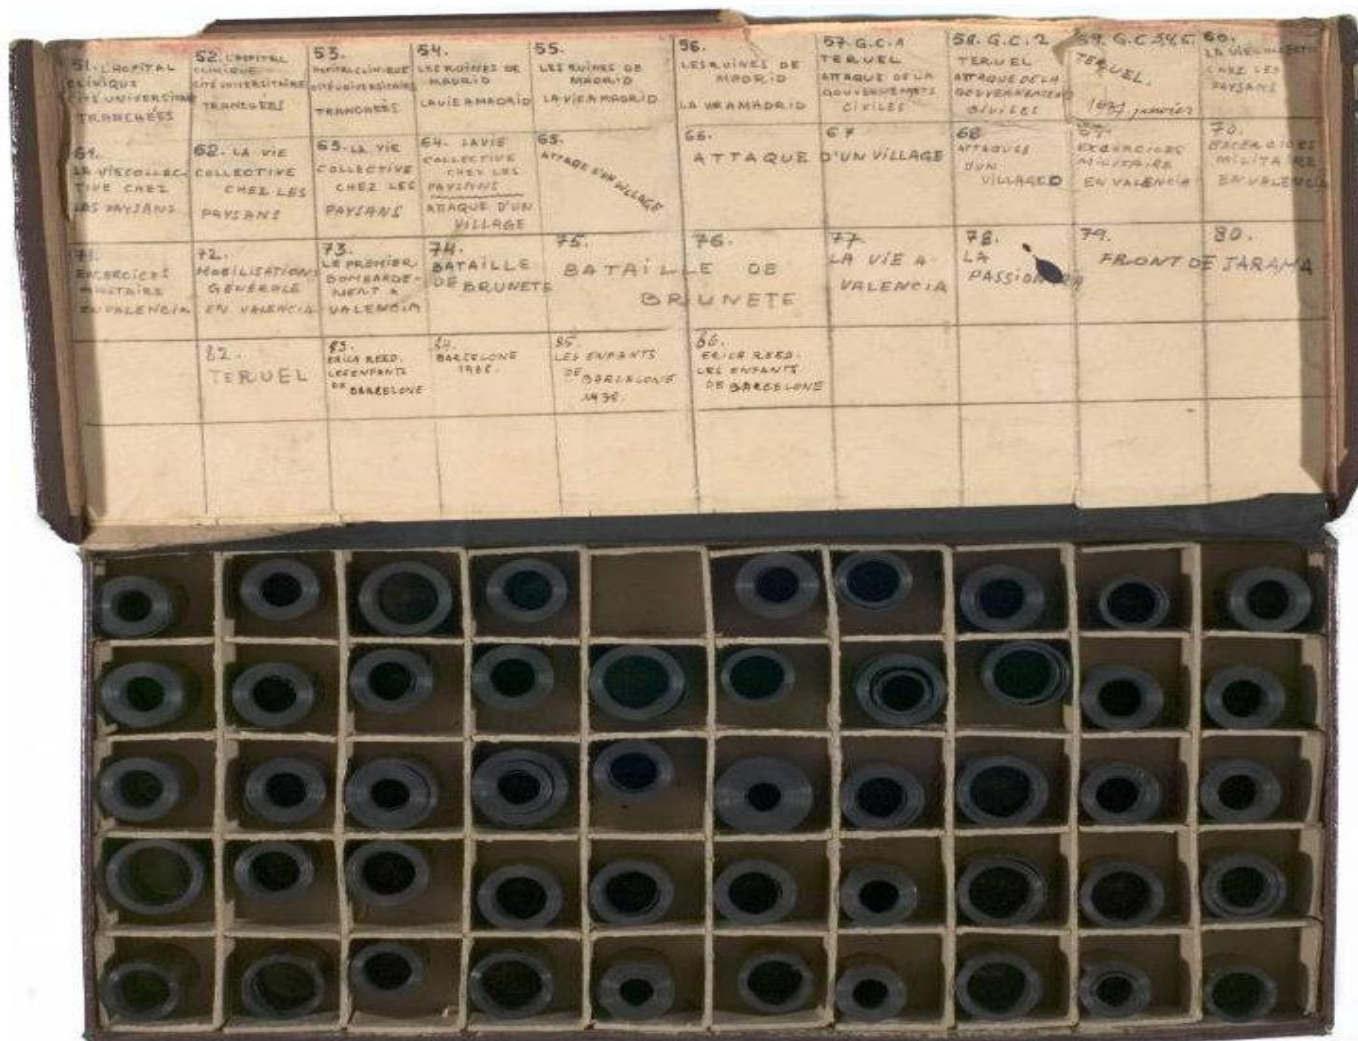 51. L'HOPITAL
CLINIQUE
CITÉ UNIVERSITAIRE
TRANCHÉES
52. L'HOPITAL
CLINIQUE
CITÉ UNIVERSITAIRE
TRANCHÉES
53.
HOPITAL CLINIQUE
CITÉ UNIVERSITAIRE
TRANCHÉES
54.
LES RUINES DE
MADRID
LA VIE A MADRID
55.
LES RUINES DE
MADRID
LA VIE A MADRID
56.
LES RUINES DE
MADRID
LA VIE A MADRID
57. G.C.1
TERUEL
ATTAQUE DE LA
CIVILES
58. G.C. 2
TERUEL
ATTAQUE DE LA
CIVILES
59. G.C 3.4.5.
TERUEL.
janvier
60.
LA VIE COLLECTIVE
CHEZ LES
PAYSANS
61.
LA VIE COLLEC-
TIVE CHEZ
LES PAYSANS
62. LA VIE
COLLECTIVE
CHEZ LES
PAYSANS
63. LA VIE
COLLECTIVE
CHEZ LES
PAYSANS
64. LA VIE
COLLECTIVE
CHEZ LES
PAYSANS
ATTAQUE D'UN
VILLAGE
65.
ATTAQUE D'UN VILLAGE
66. 67
ATTAQUE D'UN VILLAGE
68.
ATTAQUES
D'UN
VILLAGE
69.
EXCERCICES
MILITAIRE
EN VALENCIA
70.
EXCERCICES
MILITAIRE
EN VALENCIA
71.
EXCERCICES
MILITAIRE
EN VALENCIA
72.
MOBILISATION
GENERALE
EN VALENCIA
73.
LE PREMIER
BOMBARDE-
MENT A
VALENCIA
74.
BATAILLE
DE BRUNETE
75. 76.
BATAILLE DE
BRUNETE
77.
LA VIE A
VALENCIA
78.
LA
PASSIONARIA
79. 80.
FRONT DE JARAMA
82.
TERUEL
83.
ERICA REED.
LES ENFANTS
DE BARCELONE
84.
BARCELONE
1938.
85.
LES ENFANTS
DE BARCELONE
1938.
86.
ERICA REED.
LES ENFANTS
DE BARCELONE